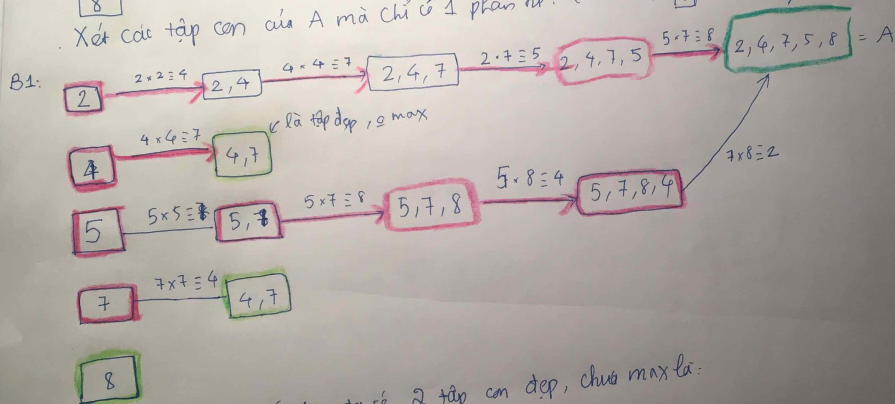 8
. Xét các tập con của A mà chỉ có 1 phần
B1:
2
2×2≡4
2,4
4×4≡7
2,4,7
2·7≡5
2,4,7,5
5×7≡8
2,4,7,5,8
= A
4
4×4≡7
4,7
là tập đẹp, o max
5
5×5≡7
5,7
5×7≡8
5,7,8
5·8≡4
5,7,8,4
7×8≡2
7
7×7≡4
4,7
8
2 tập con đẹp, chưa max là: